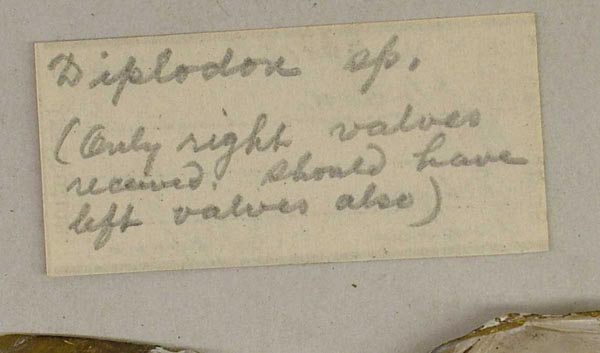 Diplodon sp.
(Only right valves
received. Should have
left valves also)